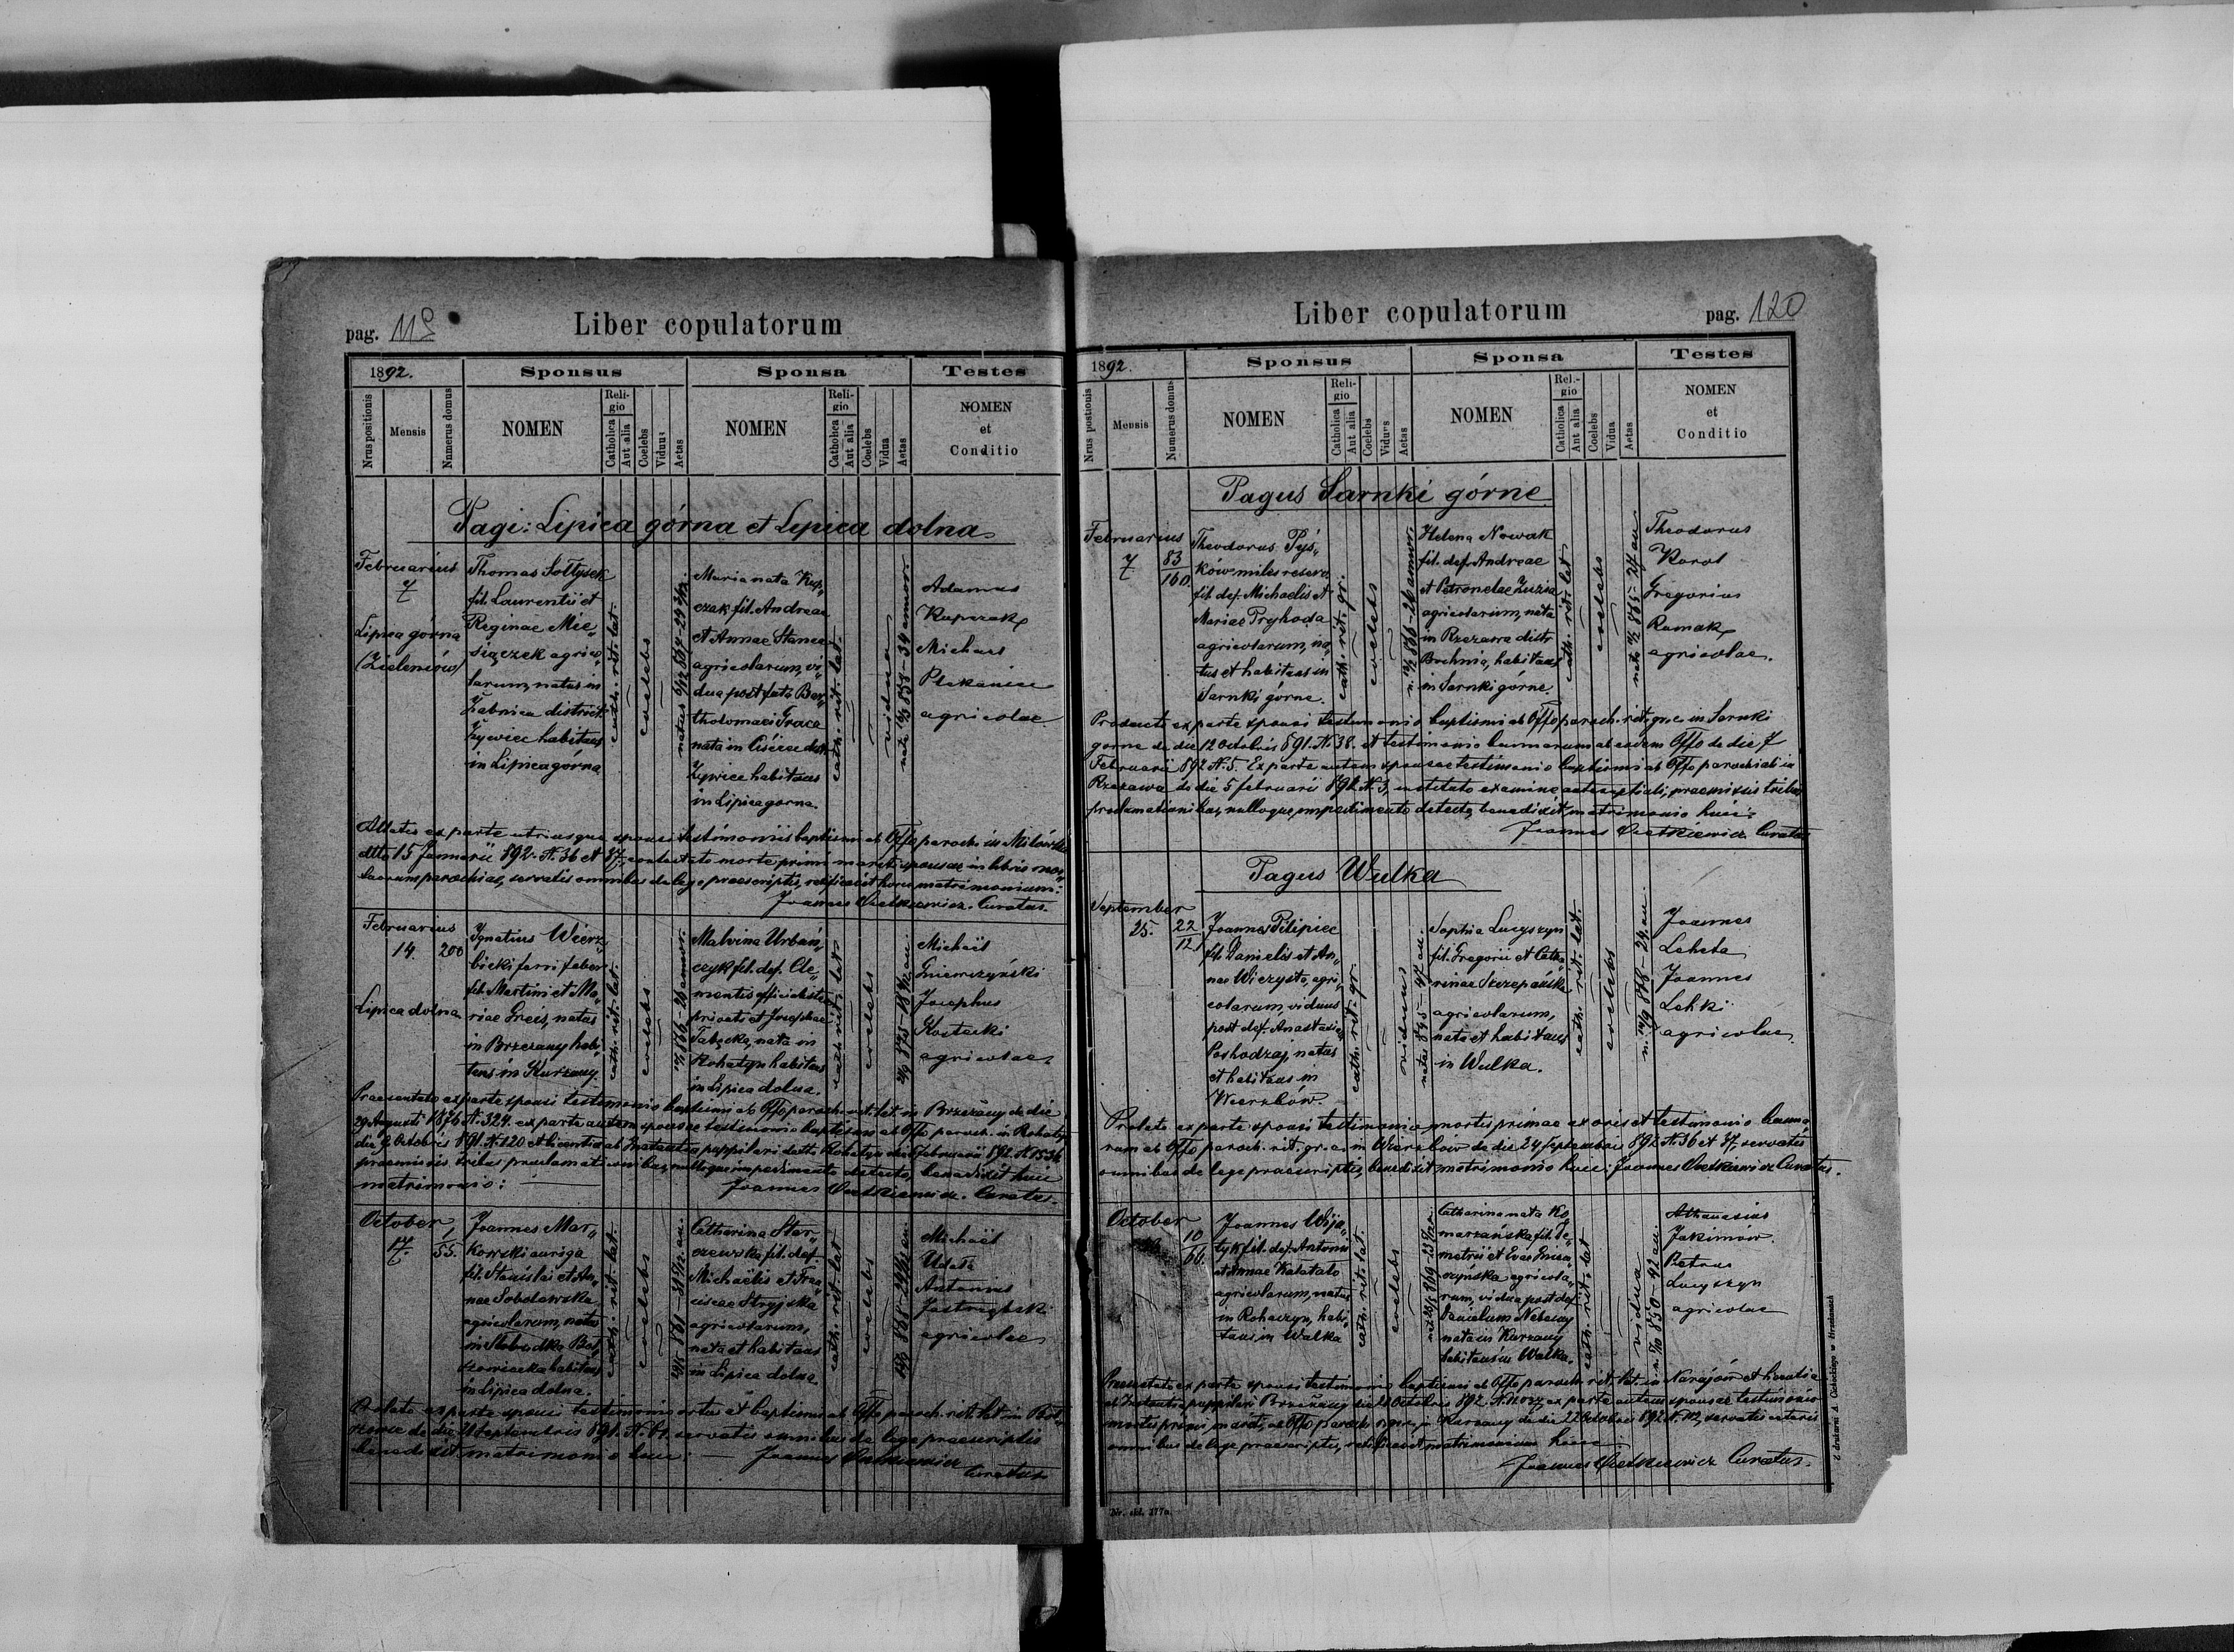 pag. 119
Liber copulatorum
1892.
Sponsus
Sponsa
Testes
Nrus positionis
Mensis
Numerus domus
NOMEN
Reli-
gio
Catholica
Aut alia
Coelebs
Viduus
Aetas
NOMEN
Reli-
gio
Catholica
Aut alia
Coelebs
Vidua
Aetas
NOMEN
et
Conditio
Pagi: Lipica górna et Lipica dolna
Februarius
7
Lipica górna
(Zieleniów)
Thomas Sołtysek
fil. Laurentii et
Reginae Mie„
siączek agrico„
larum, natus in
Żabnica district.
Żywiec habitans
in Lipica górna
cath. rit. lat.
coelebs
Maria nata Kup„
czak fil. Andreae
et Annae Stanca
agricolarum, vi„
dua post fata Bar„
tholomaei Graca
nata in Cisiec distr.
Żywiec habitans
in Lipica górna.
cath. rit. lat.
vidua
Adamus
Kupczak
Michael
agricolae
Allatis ex parte utriusque sponsi testimoniis baptismi ab Offo paroch. in Milówka
dtto 15 Januarii 892. N. 36 et 37, contestato morte primi mariti sponsae in libris mor„
tuorum parochiae, servatis omnibus de lege praescriptis, ratificavit hocce matrimonium:
Joannes Curatus.
Februarius
14.
200
Lipica dolna
Ignatius Wierz„
bicki ferri faber
fil. Martini et Ma„
riae natus
in Brzeżany habi„
tans in Kurzany.
cath. rit. lat.
coelebs
Malvina Urbań„
czyk fil. def. Cle„
mentis officialistae
privati et Josephae
nata in
Rohatyn habitans
in Lipica dolna.
cath. rit. lat
coelebs
Michaël
Gniewczyński
Josephus
Kostecki
agricolae
Praesentato ex parte sponsi testimonio baptismi ab Offo paroch. rit. lat. in Brzeżany de die
29 Augusti 1876 N. 324. ex parte autem sponsae testimonio baptismi ab Offo paroch. in Rohatyn
die 9 Octobris 891. N. 120 et licentia ab Instantia pupillari dtto Rohatyn Februarii 892. N. 1536
praemissis tribus proclamationibus, nulloque impedimento detecto, benedixit huic
matrimonio:
Joannes Curatus.
October
17.
1
55.
Joannes Mar„
kowski auriga
fil. Stanislai et An„
nae Sobolewska
agricolarum, natus
in Słobudka Boł„
szowiecka habitans
in Lipica dolna.
cath. rit. lat.
coelebs
Catharina Star„
czewska fil. def.
Michaëlis et Fran„
ciscae Stryjska
agricolarum,
nata et habitans
in Lipica dolna
cath. rit. lat
coelebs
Michaël
Antonius
Jastrzębski
agricolae
Prolato ex parte sponsi testimonio ortus et baptismi ab Offo paroch. rit. lat. in Boł„
szowce de die Septembris 891. servatis omnibus de lege praescriptis
benedixit matrimonio huic:
Joannes
Curatus.
Liber copulatorum
pag. 120
1892.
Sponsus
Sponsa
Testes
Nrus positionis
Mensis
Numerus domus
NOMEN
Reli-
gio
Catholica
Aut alia
Coelebs
Viduus
Aetas
NOMEN
Rel.-
gio
Catholica
Aut alia
Coelebs
Vidua
Aetas
NOMEN
et
Conditio
Pagus Sarnki górne
Februarius
7
83
160.
Theodorus Pys„
ków miles reserv.
fil. def. Michaelis et
Mariae Pryhoda
agricolarum, na„
tus et habitans in
Sarnki górne.
cath. rit. gr.
coelebs
Helena Nowak
fil. def. Andreae
et Petronelae
agricolarum, nata
in Rzezawa distr.
Bochnia, habitans
in Sarnki górne.
cath. rit. lat.
coelebs
Theodorus
Karol
Gregorius
Rumak
agricolae.
Producto ex parte sponsi testimonio baptismi ab Offo paroch. rit. gr. c. in Sarnki
gorne de die 12 Octobris 891. N. 38. et testimonio bannorum ab eodem Offo de die 7
Februarii 892 N. 5. Ex parte autem sponsae testimonio baptismi ab Offo parochiali in
Rzezawa de die 5 februarii 892 N. 3, instituto examine antenuptiali, praemissis tribus
proclamationibus, nulloque impedimento detecto, benedixit matrimonio huic:
Joannes Curatus
Pagus Wulka
September
25.
22
12
Joannes Pilipiec
fil. Danielis et An„
nae Wiczysta, agri„
colarum, viduus
post def. Anastasia
natus
et habitans in
Wierzbów.
cath. rit. gr.
viduus
natus 845 - 47 an.
Sophia Lucyszyn
fil. Gregorii et Catha„
rinae Szczepańska
agricolarum,
nata et habitans
in Wulka.
cath. rit. lat.
coelebs
Joannes
Laheta
Joannes
Lehki
agricolae
Prolato ex parte sponsi testimonio mortis primae uxoris et testimonio banno„
rum ab Offo paroch. rit. gr. c. in Wierzbów de die 24 Septembris 892 N. 36 et 37, servatis
omnibus de lege praescriptis, benedixit matrimonio huic: Joannes Curatus.
October
10
66.
Joannes Wija„
tyk fil. def. Antonii
et Annae
agricolarum, natus
in Rohaczyn, habi„
tans in Wulka
cath. rit. lat.
coelebs
Catharina nata Ko„
marzańska fil. De„
metrii et Evae Gniew„
czyńska agricola„
rum, vidua post def.
Danielum
nata in Kurzany
habitans in Wulka.
cath. rit. lat
vidua
Athanasius
Jakimow.
Petrus
Lucyszyn
agricolae
Praesentato ex parte sponsi testimonio baptismi ab Offo paroch. rit. lat. in Narajów et licentia
ab Instantia pupillari Brzeżany die 21 Octobris 892. ex parte autem sponsae testimonio
mortis primi mariti, ab Offo paroch. r. gr. c. in Kurzany de die 22 Octobris 892 N. 112, servatis ceteris
omnibus de lege praescriptis, ratificavit matrimonium hocce
Joannes Curatus.